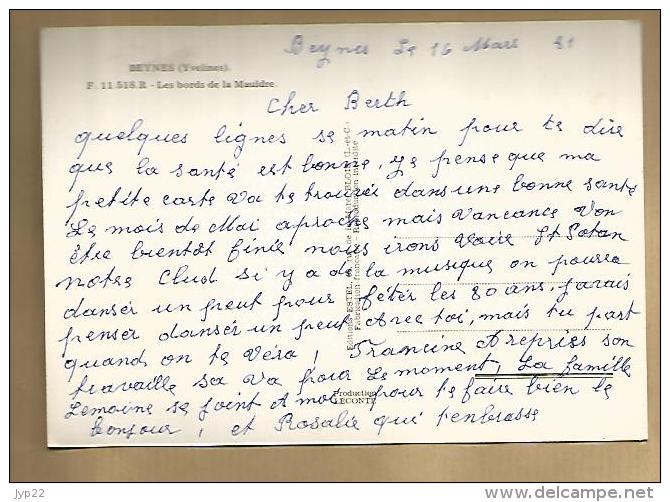 Beynes Le 16 Mars 81
BEYNES (Yvelines).
F. 11.518.R - Les bords de la Mauldre.
Cher Berth
quelques lignes se matin pour te dire
que la santé est bonne, Je pense que ma
petite carte va te trouvée dans une bonne santé
Le mois de Mai aproche mais vancance von
être bientôt finie nous irons voire St Potan
notre Clud si y a de la musique on pourra
danser un peut pour fêter les 80 ans, j'avais
penser danser un peut Avec toi, mais tu part
quand on te véra, Francine A repries son
travaille sa va pour Le moment, La famille
Lemoine se joint A moi pour te faire bien le
bonjour, et Rosalie qui t'enbrasse
Fabrication française - Reproduction interdite
Production
LECONTE
jyp22
http://www.delcampe.net